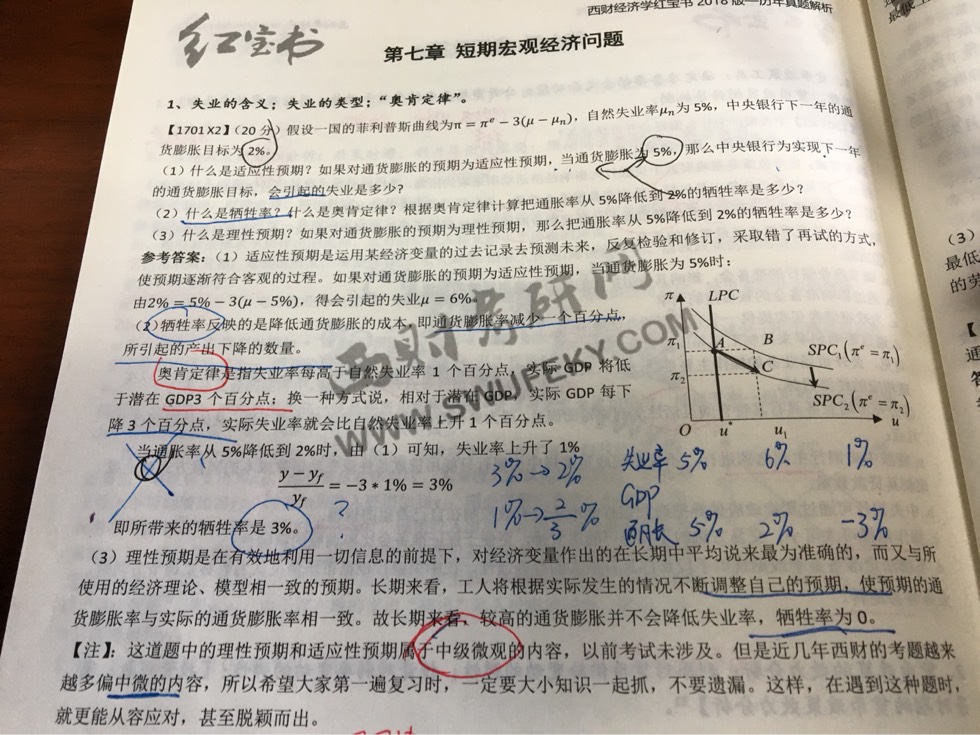 西财经济学红宝书 2018 版—历年真题解析
红宝书
第七章 短期宏观经济问题
1、失业的含义；失业的类型；“奥肯定律”。
【1701X2】（20 分）假设一国的菲利普斯曲线为π = πᵉ − 3(μ − μₙ)，自然失业率μₙ为 5%，中央银行下一年的通
货膨胀目标为 2%。
（1）什么是适应性预期？如果对通货膨胀的预期为适应性预期，当通货膨胀为 5%，那么中央银行为实现下一年
的通货膨胀目标，会引起的失业是多少？
（2）什么是牺牲率？什么是奥肯定律？根据奥肯定律计算把通胀率从 5%降低到 2%的牺牲率是多少？
（3）什么是理性预期？如果对通货膨胀的预期为理性预期，那么把通胀率从 5%降低到 2%的牺牲率是多少？
参考答案：（1）适应性预期是运用某经济变量的过去记录去预测未来，反复检验和修订，采取错了再试的方式，
使预期逐渐符合客观的过程。如果对通货膨胀的预期为适应性预期，当通货膨胀为 5%时：
由2% = 5% − 3(μ − 5%)，得会引起的失业μ = 6%。
（2）牺牲率反映的是降低通货膨胀的成本，即通货膨胀率减少一个百分点，
所引起的产出下降的数量。
奥肯定律是指失业率每高于自然失业率 1 个百分点，实际 GDP 将低
于潜在 GDP3 个百分点；换一种方式说，相对于潜在 GDP，实际 GDP 每下
降 3 个百分点，实际失业率就会比自然失业率上升 1 个百分点。
当通胀率从 5%降低到 2%时，由（1）可知，失业率上升了 1%
(y − y_f)/y_f = −3 * 1% = 3%
即所带来的牺牲率是 3%。
?
3%→2%
1%→2/3%
π LPC
π₁ A B
SPC₁(πᵉ = π₁)
π₂ C
SPC₂(πᵉ = π₂)
O u* u₁ u
失业率 5% 6% 1%
GDP
通胀 5% 2% -3%
（3）理性预期是在有效地利用一切信息的前提下，对经济变量作出的在长期中平均说来最为准确的，而又与所
使用的经济理论、模型相一致的预期。长期来看，工人将根据实际发生的情况不断调整自己的预期，使预期的通
货膨胀率与实际的通货膨胀率相一致。故长期来看，较高的通货膨胀并不会降低失业率，牺牲率为 0。
【注】：这道题中的理性预期和适应性预期属于中级微观的内容，以前考试未涉及。但是近几年西财的考题越来
越多偏中微的内容，所以希望大家第一遍复习时，一定要大小知识一起抓，不要遗漏。这样，在遇到这种题时，
就更能从容应对，甚至脱颖而出。
西财考研网
www.SWUFEKY.COM
（3）
最低
的劳